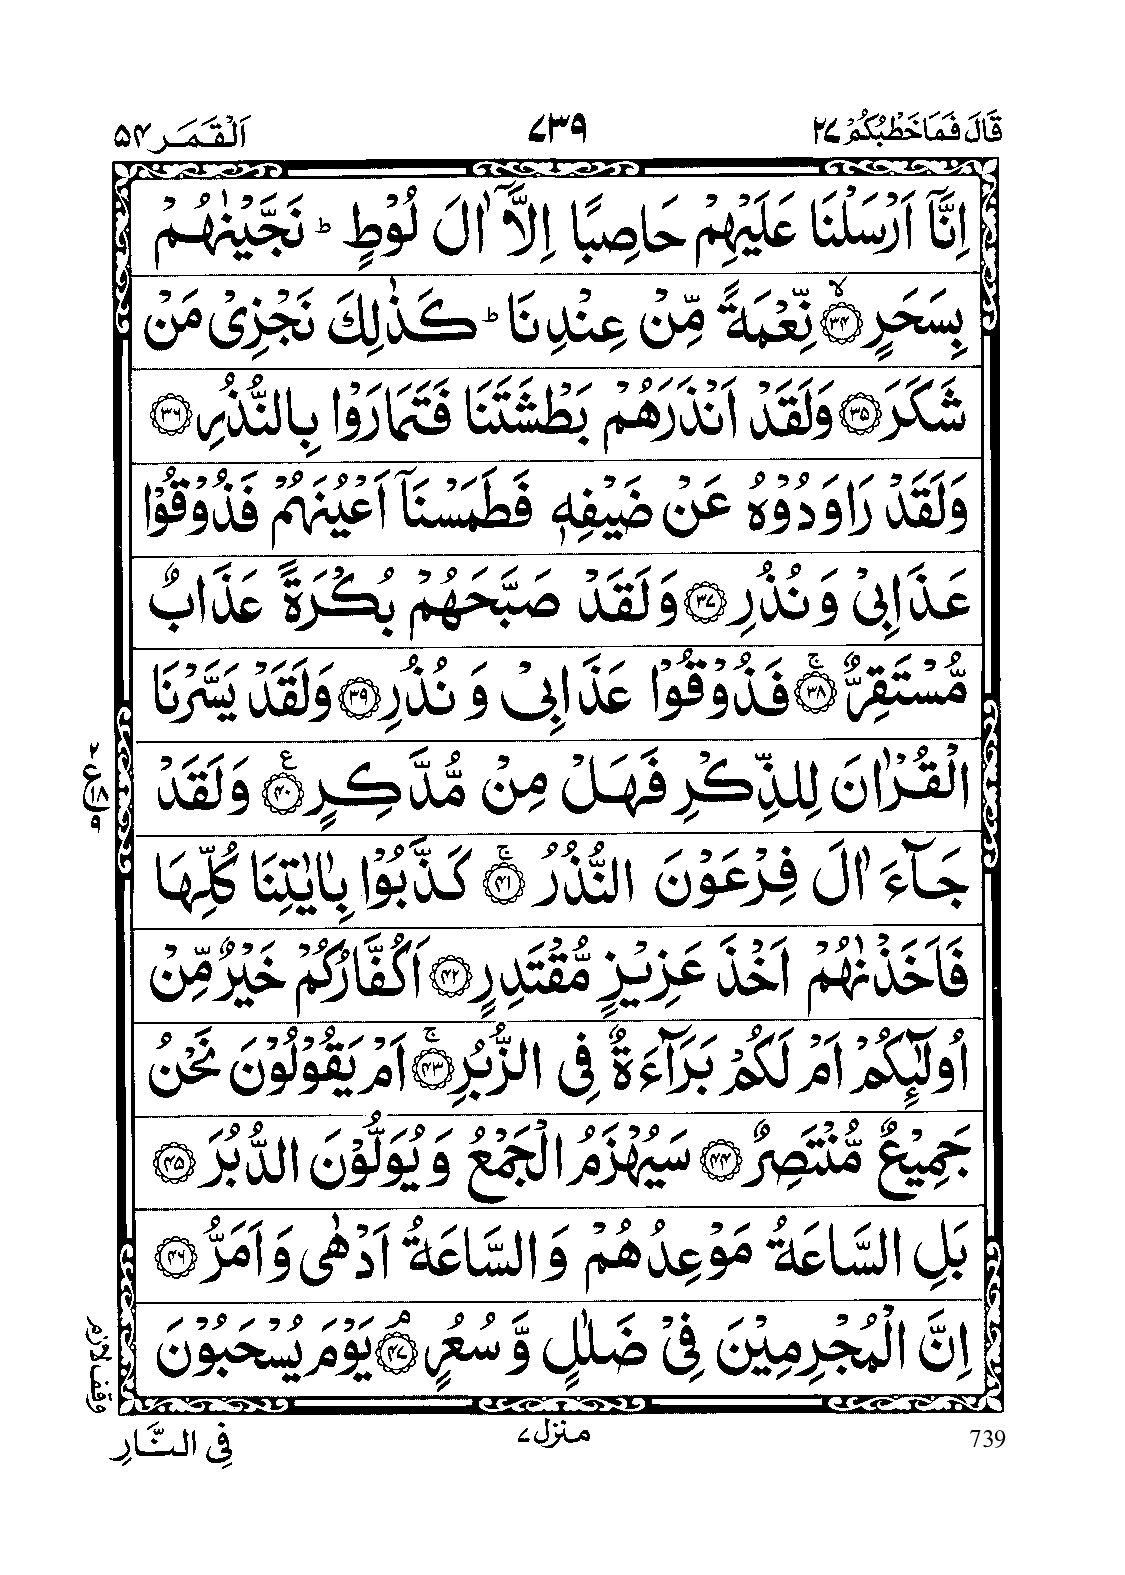 قَالَ فَمَا خَطْبُكُمْ ٢٧ ٧٣٩ اَلْقَمَر ٥٤
اِنَّاۤ اَرْسَلْنَا عَلَيْهِمْ حَاصِبًا اِلَّاۤ اٰلَ لُوْطٍ ؕ نَجَّيْنٰهُمْ
بِسَحَرٍ ۙ﴿۳۴﴾ نِّعْمَةً مِّنْ عِنْدِنَا ؕ كَذٰلِكَ نَجْزِیْ مَنْ
شَكَرَ ﴿۳۵﴾ وَلَقَدْ اَنْذَرَهُمْ بَطْشَتَنَا فَتَمَارَوْا بِالنُّذُرِ ﴿۳۶﴾
وَلَقَدْ رَاوَدُوْهُ عَنْ ضَيْفِهٖ فَطَمَسْنَاۤ اَعْيُنَهُمْ فَذُوْقُوْا
عَذَابِیْ وَ نُذُرِ ﴿۳۷﴾ وَلَقَدْ صَبَّحَهُمْ بُكْرَةً عَذَابٌ
مُّسْتَقِرٌّ ۚ﴿۳۸﴾ فَذُوْقُوْا عَذَابِیْ وَ نُذُرِ ﴿۳۹﴾ وَلَقَدْ يَسَّرْنَا
الْقُرْاٰنَ لِلذِّكْرِ فَهَلْ مِنْ مُّدَّكِرٍ ﴿۴۰﴾ؑ وَلَقَدْ
جَآءَ اٰلَ فِرْعَوْنَ النُّذُرُ ۚ﴿۴۱﴾ كَذَّبُوْا بِاٰيٰتِنَا كُلِّهَا
فَاَخَذْنٰهُمْ اَخْذَ عَزِيْزٍ مُّقْتَدِرٍ ﴿۴۲﴾ اَكُفَّارُكُمْ خَيْرٌ مِّنْ
اُولٰٓئِكُمْ اَمْ لَكُمْ بَرَآءَةٌ فِی الزُّبُرِ ۚ﴿۴۳﴾ اَمْ يَقُوْلُوْنَ نَحْنُ
جَمِيْعٌ مُّنْتَصِرٌ ﴿۴۴﴾ سَيُهْزَمُ الْجَمْعُ وَ يُوَلُّوْنَ الدُّبُرَ ﴿۴۵﴾
بَلِ السَّاعَةُ مَوْعِدُهُمْ وَ السَّاعَةُ اَدْهٰى وَ اَمَرُّ ﴿۴۶﴾
اِنَّ الْمُجْرِمِيْنَ فِیْ ضَلٰلٍ وَّ سُعُرٍ ۘ﴿۴۷﴾ يَوْمَ يُسْحَبُوْنَ
وقف لازم
739 منزل ٧ فِی النَّارِ